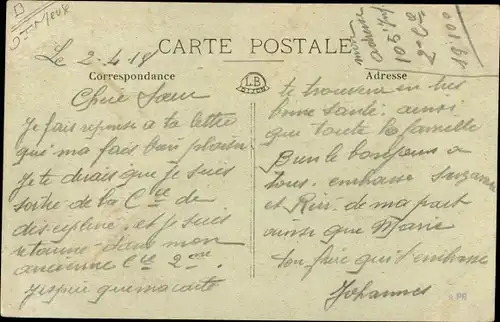 St Meux
Le 2-4-18
CARTE POSTALE
Correspondance
Adresse
LB
DIJON
mon
Adresse
105 Inf
2e Cie
SP 100
Chère Sœur
Je fais reponse a ta lettre
qui ma fais bien plaisir
Je te dirais que je suis
sortie de la Cie de
discipline et je suis
retourne dans mon
ancienne Cie 2eme
Jespère que ma carte
te trouvera en tres
bonne santé ainsi
que toute la famille
Bien le bonjours a
tous. embrasse Suzanne
et Riri de ma part
ainsi que Marie
Ton frère qui t'embrasse
Johannes